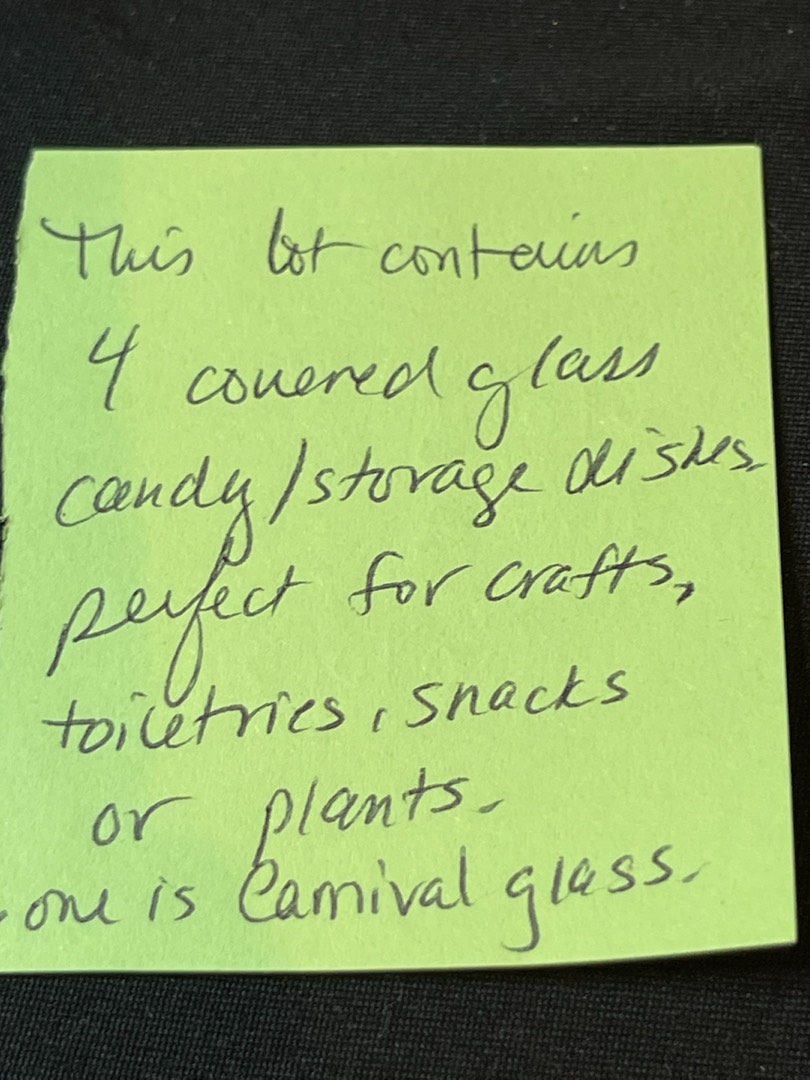 This lot contains
4 covered glass
candy/storage dishes.
perfect for crafts,
toiletries, snacks
or plants.
- one is Carnival glass.